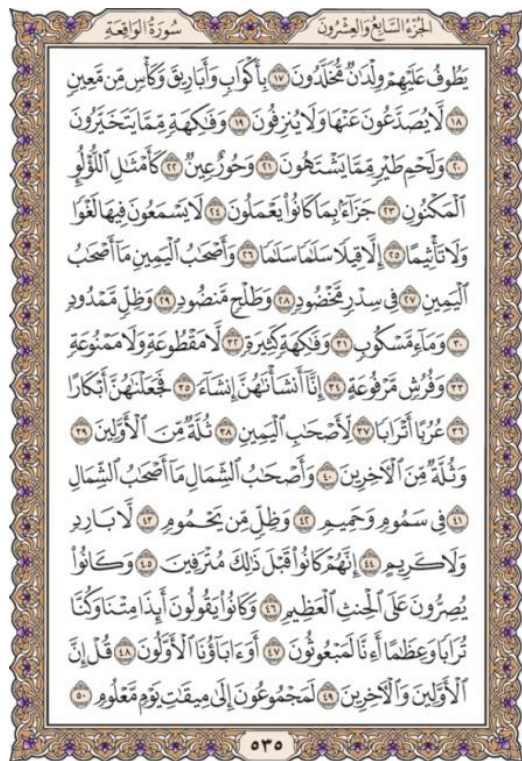 الجُزْءُ السَّابِعُ وَالْعِشْرُونَ سُورَةُ الْوَاقِعَةِ
يَطُوفُ عَلَيْهِمْ وِلْدَٰنٌ مُّخَلَّدُونَ ١٧ بِأَكْوَابٍ وَأَبَارِيقَ وَكَأْسٍ مِّن مَّعِينٍ
١٨ لَّا يُصَدَّعُونَ عَنْهَا وَلَا يُنزِفُونَ ١٩ وَفَٰكِهَةٍ مِّمَّا يَتَخَيَّرُونَ
٢٠ وَلَحْمِ طَيْرٍ مِّمَّا يَشْتَهُونَ ٢١ وَحُورٌ عِينٌ ٢٢ كَأَمْثَٰلِ اللُّؤْلُؤِ
الْمَكْنُونِ ٢٣ جَزَآءًۢ بِمَا كَانُوا۟ يَعْمَلُونَ ٢٤ لَا يَسْمَعُونَ فِيهَا لَغْوًا
وَلَا تَأْثِيمًا ٢٥ إِلَّا قِيلًا سَلَٰمًا سَلَٰمًا ٢٦ وَأَصْحَٰبُ الْيَمِينِ مَآ أَصْحَٰبُ
الْيَمِينِ ٢٧ فِى سِدْرٍ مَّخْضُودٍ ٢٨ وَطَلْحٍ مَّنضُودٍ ٢٩ وَظِلٍّ مَّمْدُودٍ
٣٠ وَمَآءٍ مَّسْكُوبٍ ٣١ وَفَٰكِهَةٍ كَثِيرَةٍ ٣٢ لَّا مَقْطُوعَةٍ وَلَا مَمْنُوعَةٍ
٣٣ وَفُرُشٍ مَّرْفُوعَةٍ ٣٤ إِنَّآ أَنشَأْنَٰهُنَّ إِنشَآءً ٣٥ فَجَعَلْنَٰهُنَّ أَبْكَارًا
٣٦ عُرُبًا أَتْرَابًا ٣٧ لِّأَصْحَٰبِ الْيَمِينِ ٣٨ ثُلَّةٌ مِّنَ الْأَوَّلِينَ ٣٩
وَثُلَّةٌ مِّنَ الْءَاخِرِينَ ٤٠ وَأَصْحَٰبُ الشِّمَالِ مَآ أَصْحَٰبُ الشِّمَالِ
٤١ فِى سَمُومٍ وَحَمِيمٍ ٤٢ وَظِلٍّ مِّن يَحْمُومٍ ٤٣ لَّا بَارِدٍ
وَلَا كَرِيمٍ ٤٤ إِنَّهُمْ كَانُوا۟ قَبْلَ ذَٰلِكَ مُتْرَفِينَ ٤٥ وَكَانُوا۟
يُصِرُّونَ عَلَى الْحِنثِ الْعَظِيمِ ٤٦ وَكَانُوا۟ يَقُولُونَ أَئِذَا مِتْنَا وَكُنَّا
تُرَابًا وَعِظَٰمًا أَءِنَّا لَمَبْعُوثُونَ ٤٧ أَوَءَابَآؤُنَا الْأَوَّلُونَ ٤٨ قُلْ إِنَّ
الْأَوَّلِينَ وَالْءَاخِرِينَ ٤٩ لَمَجْمُوعُونَ إِلَىٰ مِيقَٰتِ يَوْمٍ مَّعْلُومٍ ٥٠
٥٣٥